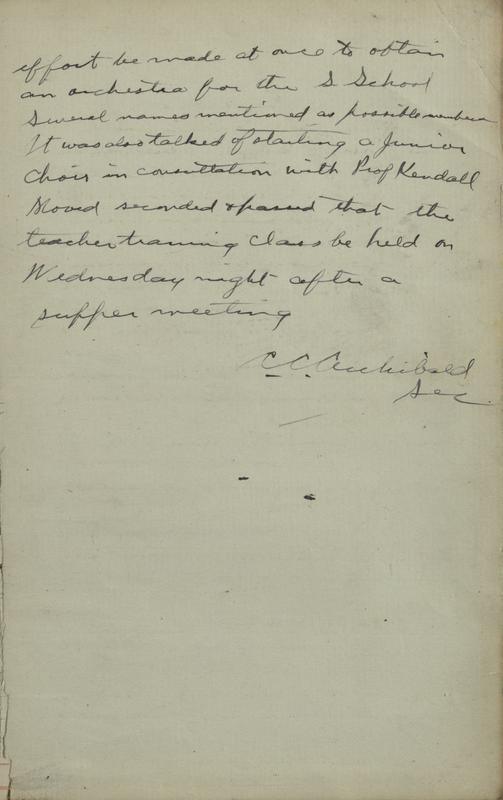 effort be made at once to obtain
an orchestra for the S School
Several names mentioned as possible members
It was also talked of starting a Junior
Choir in consultation with Prof Kendall
Moved seconded & passed that the
teacher training class be held on
Wednesday night after a
supper meeting
C. C. Archibald
Sec